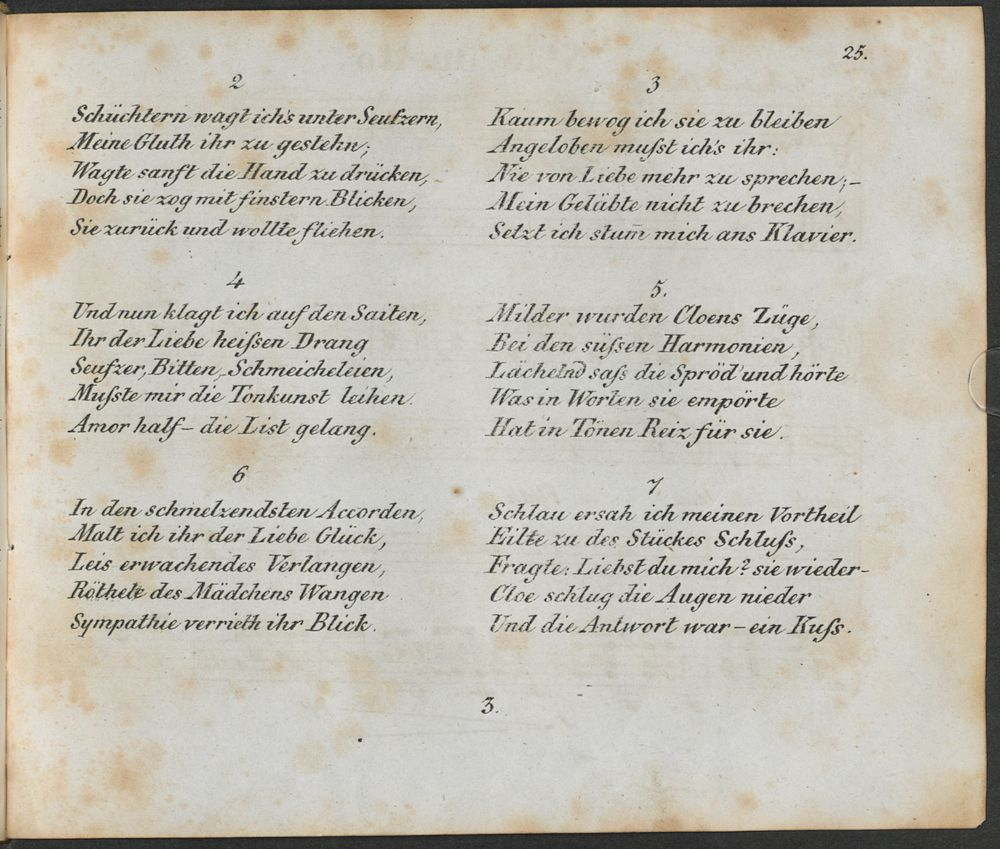 25.
2
Schüchtern wagt ich's unter Seufzern,
Meine Gluth ihr zu gestehn;
Wagte sanft die Hand zu drücken,
Doch sie zog mit finstern Blicken,
Sie zurück und wollte fliehen.
3
Kaum bewog ich sie zu bleiben
Angeloben mußt ich's ihr:
Nie von Liebe mehr zu sprechen;–
Mein Gelübte nicht zu brechen,
Setzt ich stum̅ mich ans Klavier.
4
Und nun klagt ich auf den Saiten,
Ihr der Liebe heißen Drang
Seufzer, Bitten, Schmeicheleien,
Mußte mir die Tonkunst leihen.
Amor half – die List gelang.
5.
Milder wurden Cloens Züge,
Bei den süßen Harmonien,
Lächelnd saß die Spröd' und hörte
Was in Worten sie empörte
Hat in Tönen Reiz für sie.
6
In den schmelzendsten Accorden,
Malt ich ihr der Liebe Glück,
Leis erwachendes Verlangen,
Röthete des Mädchens Wangen
Sympathie verrieth ihr Blick.
7
Schlau ersah ich meinen Vortheil
Eilte zu des Stückes Schluß,
Fragte: Liebst du mich? sie wieder–
Cloe schlug die Augen nieder
Und die Antwort war – ein Kuß.
3.